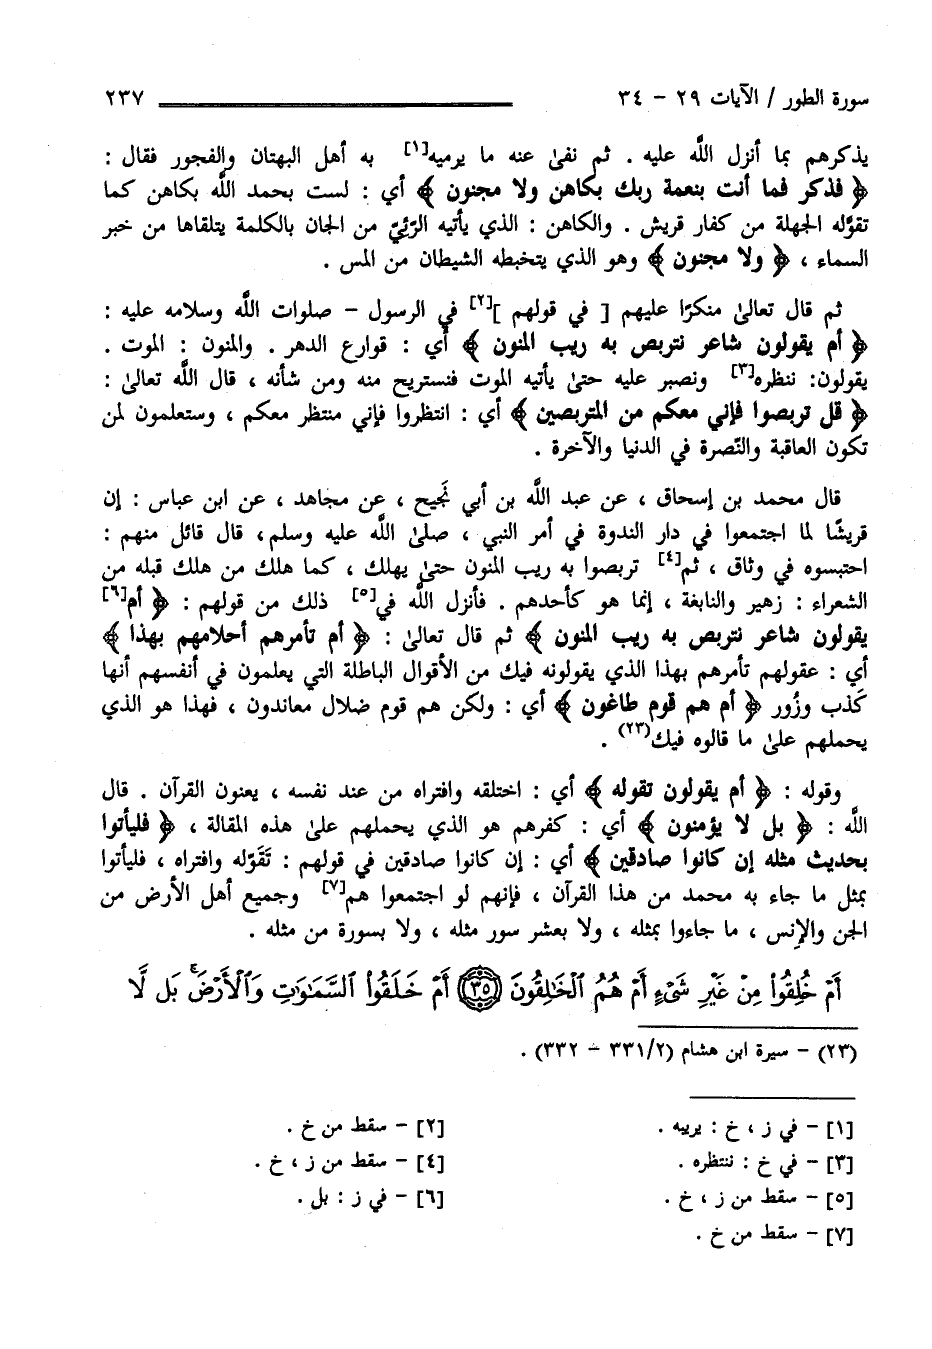 سورة الطور / الآيات ٢٩ - ٣٤ ٢٣٧
يذكرهم بما أنزل اللَّه عليه . ثم نفىٰ عنه ما يرميه[١] به أهل البهتان والفجور فقال :
﴿ فذكر فما أنت بنعمة ربك بكاهن ولا مجنون ﴾ أي : لست بحمد اللَّه بكاهن كما
تقوَّله الجهلة من كفار قريش . والكاهن : الذي يأتيه الرَّئِيّ من الجان بالكلمة يتلقاها من خبر
السماء ، ﴿ ولا مجنون ﴾ وهو الذي يتخبطه الشيطان من المس .
ثم قال تعالىٰ منكرًا عليهم [ في قولهم ][٢] في الرسول - صلوات اللَّه وسلامه عليه :
﴿ أم يقولون شاعر نتربص به ريب المنون ﴾ أي : قوارع الدهر . والمنون : الموت .
يقولون: ننظره[٣] ونصبر عليه حتىٰ يأتيه الموت فنستريح منه ومن شأنه ، قال اللَّه تعالىٰ :
﴿ قل تربصوا فإني معكم من المتربصين ﴾ أي : انتظروا فإني منتظر معكم ، وستعلمون لمن
تكون العاقبة والنّصرة في الدنيا والآخرة .
قال محمد بن إسحاق ، عن عبد اللَّه بن أبي نَجيح ، عن مجاهد ، عن ابن عباس : إن
قريشًا لما اجتمعوا في دار الندوة في أمر النبي ، صلىٰ اللَّه عليه وسلم، قال قائل منهم :
احتبسوه في وثاق ، ثم[٤] تربصوا به ريب المنون حتىٰ يهلك ، كما هلك من هلك قبله من
الشعراء : زهير والنابغة ، إنما هو كأحدهم . فأنزل اللَّه في[٥] ذلك من قولهم : ﴿ أم[٦]
يقولون شاعر نتربص به ريب المنون ﴾ ثم قال تعالىٰ : ﴿ أم تأمرهم أحلامهم بهذا ﴾
أي : عقولهم تأمرهم بهذا الذي يقولونه فيك من الأقوال الباطلة التي يعلمون في أنفسهم أنها
كَذب وزُور ﴿ أم هم قوم طاغون ﴾ أي : ولكن هم قوم ضلال معاندون ، فهذا هو الذي
يحملهم علىٰ ما قالوه فيك(٢٣) .
وقوله : ﴿ أم يقولون تقوله ﴾ أي : اختلقه وافتراه من عند نفسه ، يعنون القرآن . قال
اللَّه : ﴿ بل لا يؤمنون ﴾ أي : كفرهم هو الذي يحملهم علىٰ هذه المقالة ، ﴿ فليأتوا
بحديث مثله إن كانوا صادقين ﴾ أي : إن كانوا صادقين في قولهم : تَقَوّله وافتراه ، فليأتوا
بمثل ما جاء به محمد من هذا القرآن ، فإنهم لو اجتمعوا هم[٧] وجميع أهل الأرض من
الجن والإنس ، ما جاءوا بمثله ، ولا بعشر سور مثله ، ولا بسورة من مثله .
أَمْ خُلِقُوا۟ مِنْ غَيْرِ شَىْءٍ أَمْ هُمُ ٱلْخَـٰلِقُونَ ٣٥ أَمْ خَلَقُوا۟ ٱلسَّمَـٰوَٰتِ وَٱلْأَرْضَۚ بَل لَّا
(٢٣) - سيرة ابن هشام (٣٣١/٢ - ٣٣٢) .
[١] - في ز ، خ : يريبه . [٢] - سقط من خ .
[٣] - في خ : ننتظره . [٤] - سقط من ز ، خ .
[٥] - سقط من ز ، خ . [٦] - في ز : بل .
[٧] - سقط من خ .